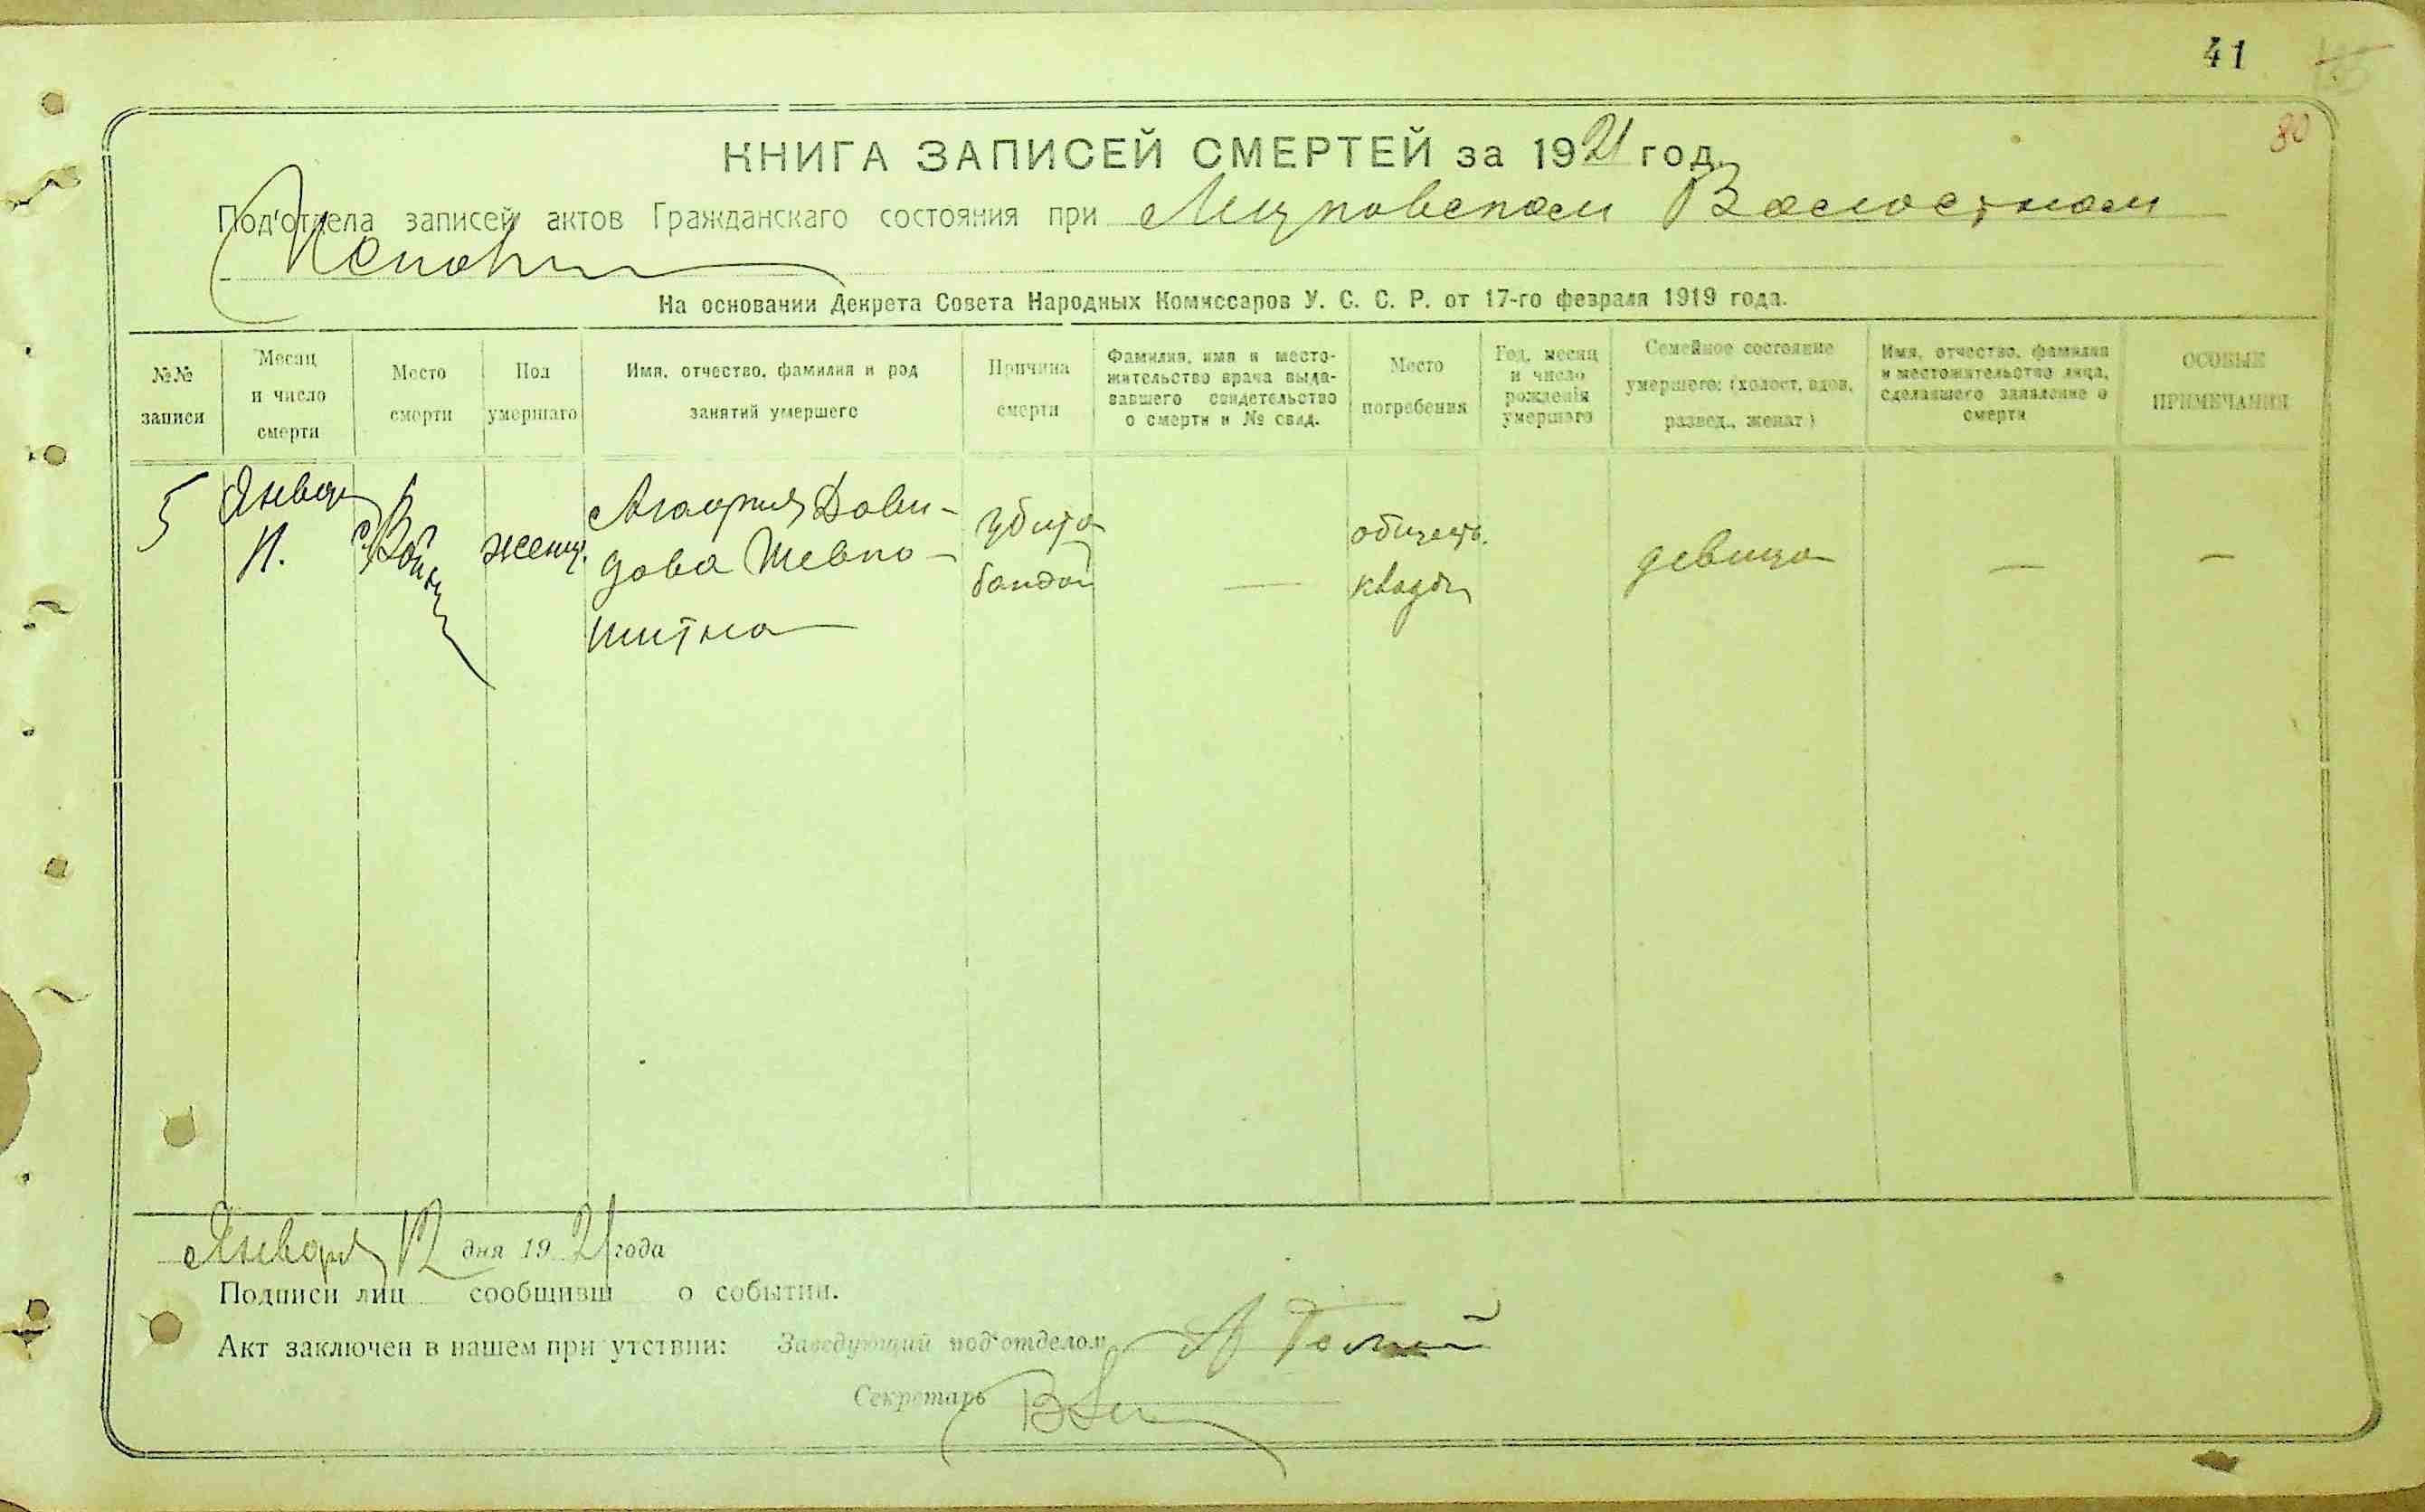 41
80
КНИГА ЗАПИСЕЙ СМЕРТЕЙ за 1921 год.
Под'отдела записей актов Гражданскаго состояния при Волостном
На основании Декрета Совета Народных Комиссаров У. С. С. Р. от 17-го февраля 1919 года.
№№ записи
Месяц и число смерти
Место смерти
Пол умершаго
Имя, отчество, фамилия и род занятий умершего
Причина смерти
Фамилия, имя и место-
жительство врача выда-
вавшего свидетельство
о смерти и № свид.
Место погребения
Год, месяц и число рождения умершаго
Семейное состояние умершего: (холост, вдов, развед., женат)
Имя, отчество, фамилия
и местожительство лица,
сделавшего заявление о
смерти
ОСОБЫЕ ПРИМЕЧАНИЯ
5
Января
11.
женщ.
Дави-
дова Шевко-
шитна
Убита
бандой
—
обществ.
девица
—
—
Января 12 дня 1921 года
Подписи лиц сообщивш о событии.
Акт заключен в нашем при утствии: Заведующий под'отделом
Секретарь